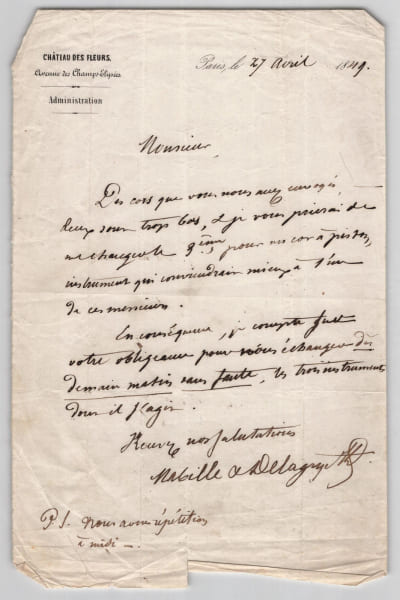 CHÂTEAU DES FLEURS,
Avenue des Champs Elysées
Administration
Paris, le 27 Avril 1849.
Monsieur,
Des cors que vous nous avez envoyés,
deux sont trop bas, & je vous prierai de
me changer le 3ème pour un cor à piston,
instrument qui conviendrait mieux à l'un
de ces messieurs.
En conséquence, je compte sur
votre obligeance pour nous échanger dès
demain matin sans faute, les trois instruments
dont il s'agit.
Recevez nos salutations
Mabille & Delagny
P.S. nous avons répétition
à midi —.